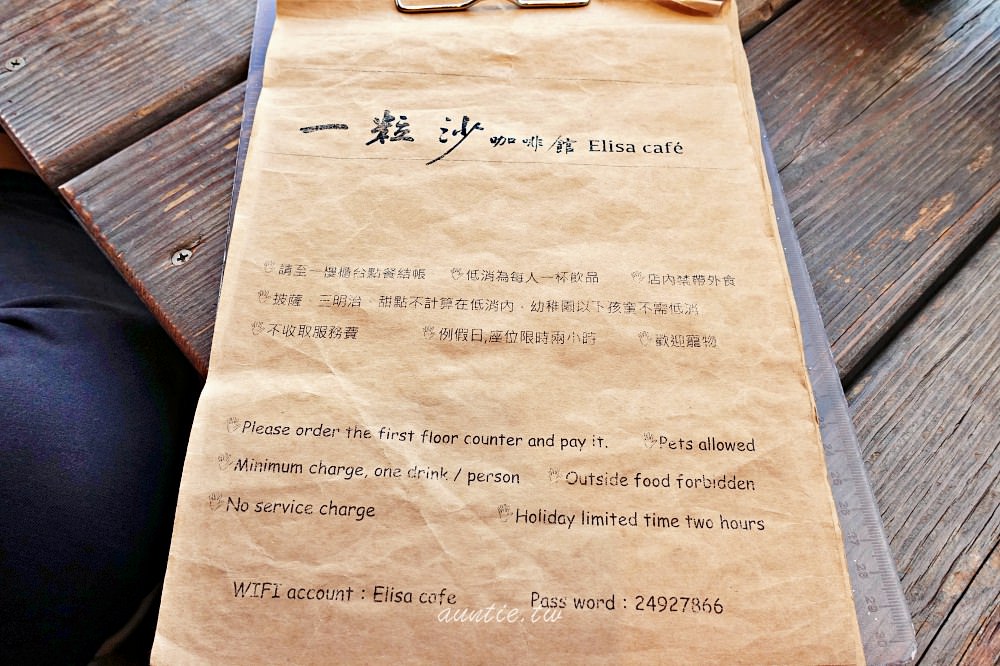 一粒沙 咖啡館 Elisa café
請至一樓櫃台點餐結帳 低消為每人一杯飲品 店內禁帶外食
披薩、三明治、甜點不計算在低消內、幼稚園以下孩童不需低消
不收取服務費 例假日,座位限時兩小時 歡迎寵物
Please order the first floor counter and pay it. Pets allowed
Minimum charge, one drink / person Outside food forbidden
No service charge Holiday limited time two hours
WIFI account：Elisa cafe Pass word：24927866
auntie.tw